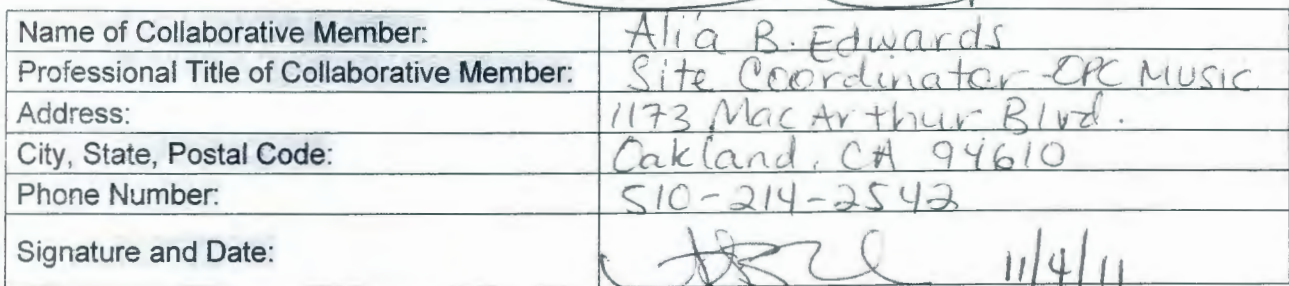 Name of Collaborative Member: Alia B. Edwards
Professional Title of Collaborative Member: Site Coordinator - EPC Music
Address: 1173 MacArthur Blvd.
City, State, Postal Code: Oakland, CA 94610
Phone Number: 510-214-2542
Signature and Date: 11/4/11